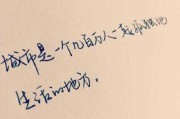 城市是一个几百万人一起孤独地
生活的地方。